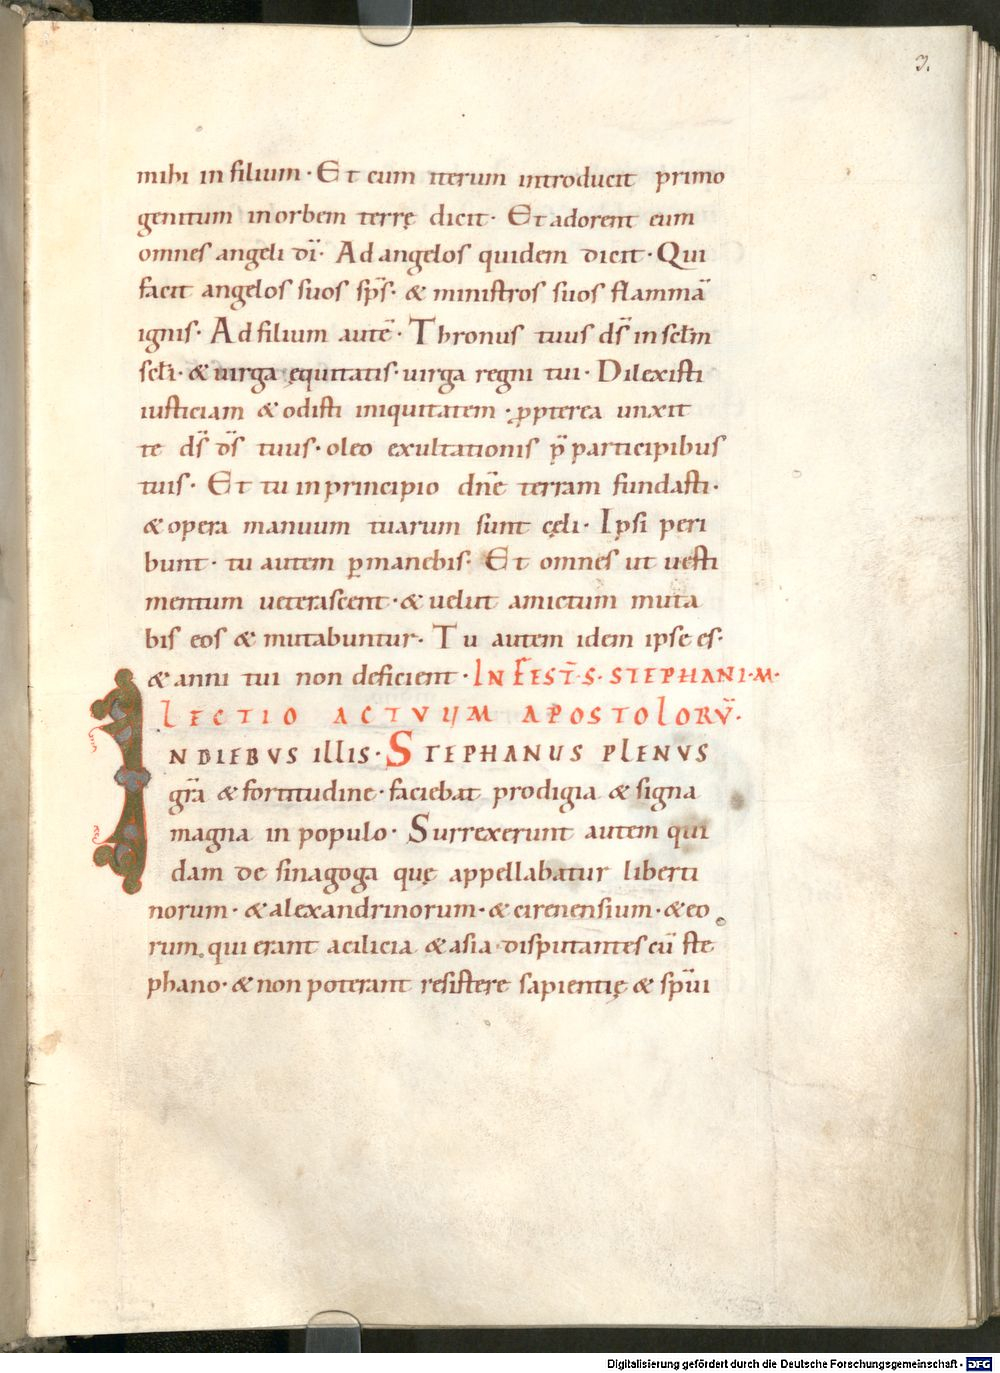 3.
mihi in filium · Et cum iterum introducit primo
genitum in orbem terrę dicit · Et adorent eum
omnes angeli dī · Ad angelos quidem dicit · Qui
facit angelos suos sp̄s · & ministros suos flammā
ignis · Ad filium autē · Thronus tuus ds̄ in scłm
scłi · & uirga ęquitatis · uirga regni tui · Dilexisti
iusticiam & odisti iniquitatem · ꝓpterea unxit
te ds̄ ds̄ tuus · oleo exultationis p̄ participibus
tuis · Et tu in principio dn̄e terram fundasti ·
& opera manuum tuarum sunt cęli · Ipsi peri
bunt · tu autem ꝑmanebis · Et omnes ut uesti
mentum ueterascent · & uelut amictum muta
bis eos & mutabuntur · Tu autem idem ipse es ·
& anni tui non deficient · IN FEST̄ · S · STEPHANI · M ·
LECTIO ACTVUM APOSTOLORV̄ ·
IN DIEBVS ILLIS · STEPHANUS PLENVS
gr̄a & fortitudine · faciebat prodigia & signa
magna in populo · Surrexerunt autem qui
dam de sinagoga quę appellabatur liberti
norum · & alexandrinorum · & cirenensium · & eo
rum qui erant a cilicia & asia disputantes cū ste
phano · & non poterant resistere sapientię & sp̄ui
Digitalisierung gefördert durch die Deutsche Forschungsgemeinschaft - DFG